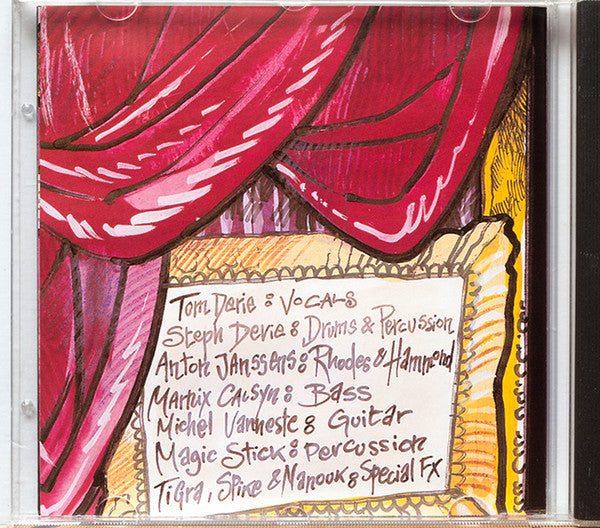 Tom Derie : Vocals
Steph Derie : Drums & Percussion
Anton Janssens : Rhodes & Hammond
Marnix Calsyn : Bass
Michel Vanneste : Guitar
Magic Stick : percussion
Tigra, Spike & Nanouk : Special FX